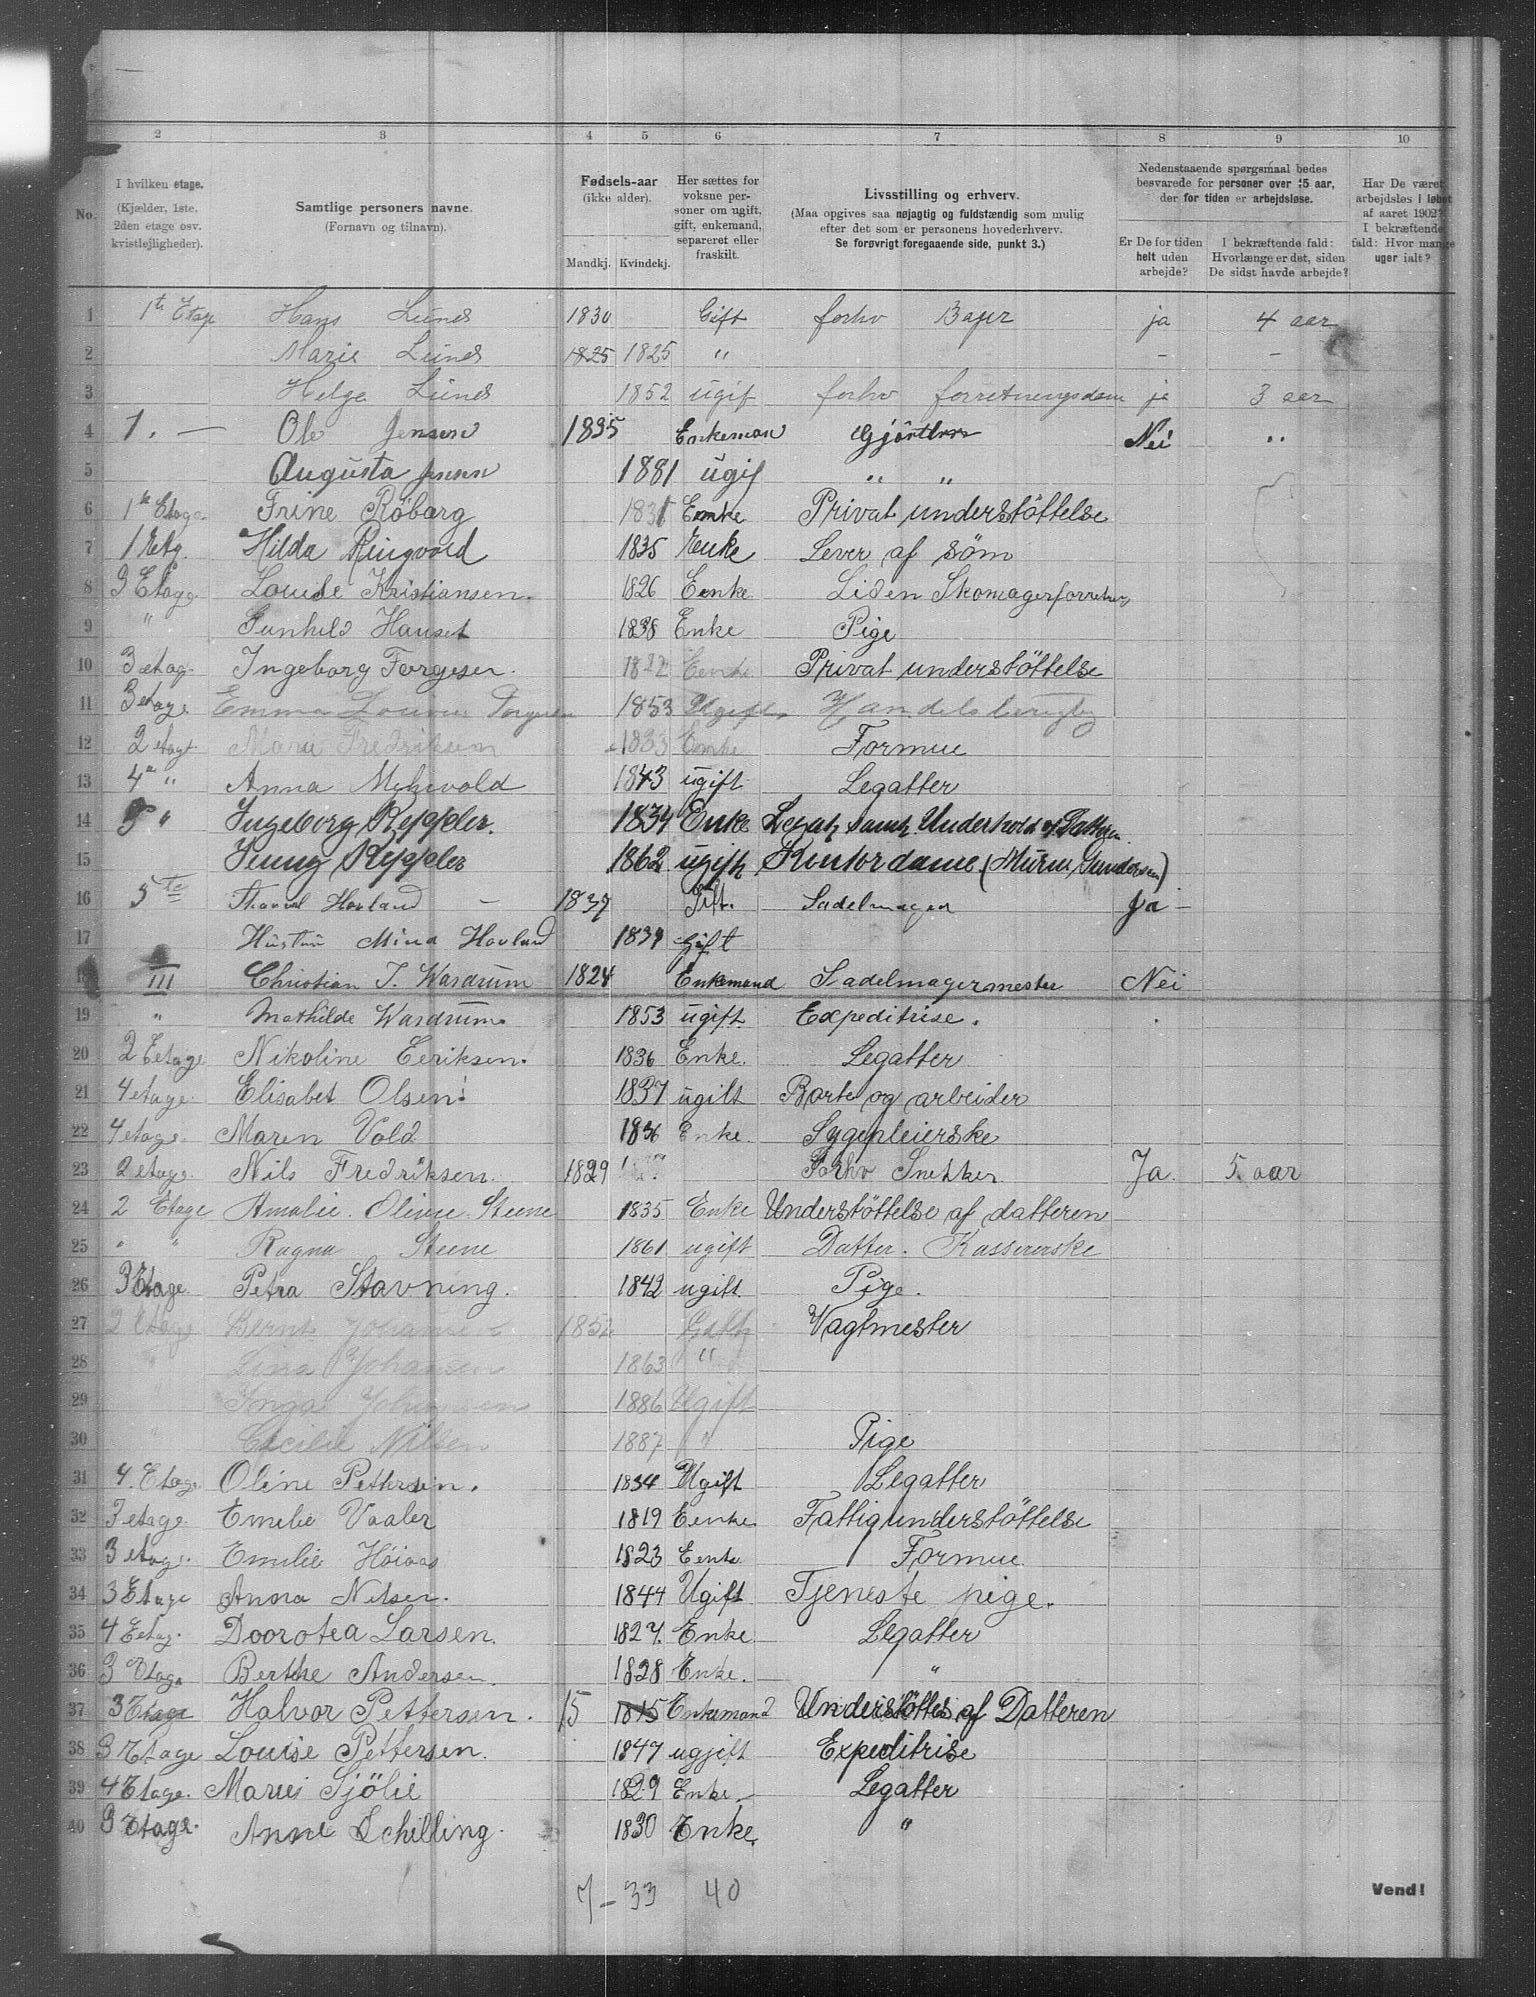 2 3 4 5 6 7 8 9 10
No. I hvilken etage. (Kjælder, 1ste, 2den etage osv. kvistlejligheder). Samtlige personers navne. (Fornavn og tilnavn). Fødsels-aar (ikke alder). Mandkj. Kvindekj. Her sættes for voksne personer om ugift, gift, enkemand, separeret eller fraskilt. Livsstilling og erhverv. (Maa opgives saa nøjagtig og fuldstændig som mulig efter det som er personens hovederhverv. Se forøvrigt foregaaende side, punkt 3.) Nedenstaaende spørgsmaal bedes besvarede for personer over 15 aar, der for tiden er arbejdsløse. Er De for tiden helt uden arbejde? I bekræftende fald: Hvorlænge er det, siden De sidst havde arbejde? Har De været arbejdsløs i løbet af aaret 1902? I bekræftende fald: Hvor mange uger ialt?
1 1te Etage Hans Lund 1830 Gift forhv Bager ja 4 aar
2 Marie Lund 1825 1825 " - -
3 Helga Lund 1852 ugif forhv forretningsdame ja 3 aar
4 1. — Ole Jensen 1835 Enkeman Gjörtler Nei "
5 Augusta Jensen 1881 ugif " "
6 1te Etage Trine Röbarg 1831 Eenke Privat understöttelse
7 1 Etg. Hilda Ringvold 1835 Enke Lever af söm
8 3 Etage Louise Kristiansen. 1826 Eenke Liden Skomagerforretning
9 " Gunhild Hauset 1838 Enke Pige
10 3 etag. Ingeborg Torgesen. 1822 Eenke Privat understöttelse
11 3 etage Emma Lovise 1853 Ugift
12 2 etage Marie Fredriksen 1833 Enke Formue
13 4a " Anna Myhrvold 1843 ugift Legatter
14 3 " Ingeborg Keppler. 1834 Enke Legat, samt Underhold af Datteren
15 Jenny Keppler 1862 ugift Kontordame (Murm. Gundersen)
16 5te Hovland — 1837 Gift. Sadelmager Ja —
17 Hustru Mina Hovland 1839 Gift
18 III Christian J. Wardrum 1824 Enkemand Sadelmagermester Nei
19 " Mathilde Wardrum 1853 ugift Expeditrise.
20 2 Eetage Nikoline Eeriksen. 1836 Enke. Legatter
21 4 etage Elisabet Olsen! 1837 ugift Borte og arbeider
22 4 etage. Maren Vold 1836 Enke. Sygepleierske
23 2 etage. Nils Fredriksen. 1829 Forhv Snekker Ja. 5. aar
24 2 Etage Amalie. Olivie. Steene 1835 Enke Understöttelse af datteren
25 " " Ragna Steene 1861 ugift Datter. Kassererske
26 3 Etage. Petra Stavning. 1842 ugift. Pige.
27 2 Etage Bernt Johansen 1852 Gift Vagtmester
28 " Lina Johansen 1863 "
29 " Inga Johansen 1886 Ugift
30 " Cecilie Nilsen 1887 " Pige
31 4. Etage Oline Pettersen. 1834 Ugift Legatter
32 3 etage. Emelie Vaaler 1819 Eenke Fattigunderstöttelse
33 3 etage. Emilie Höiaas 1823 Eenke Formue
34 3 Etage Anna Nelsen. 1844 Ugift Tjeneste pige.
35 4 Eetag. Doorotea Larsen. 1827. Enke. Legatter
36 3 Etage Berthe Andersen. 1828 Enke. "
37 3 Etage Halvor Pettersen. 15 1815 Enkemand Understöttes af Datteren
38 3 Etage Louise Pettersen. 1847 ugjift Expeditrise
39 4 Etage. Marie Sjölie 1829 Enke. — Legatter
40 3 Etage. Anne Schilling. 1830 Enke. "
7 – 33 40
Vend!